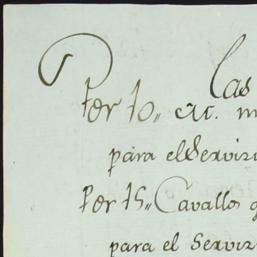 Las
Per 10,, etc. m
para el Servizi
Per 15,, Cavallos q
para el Servizi